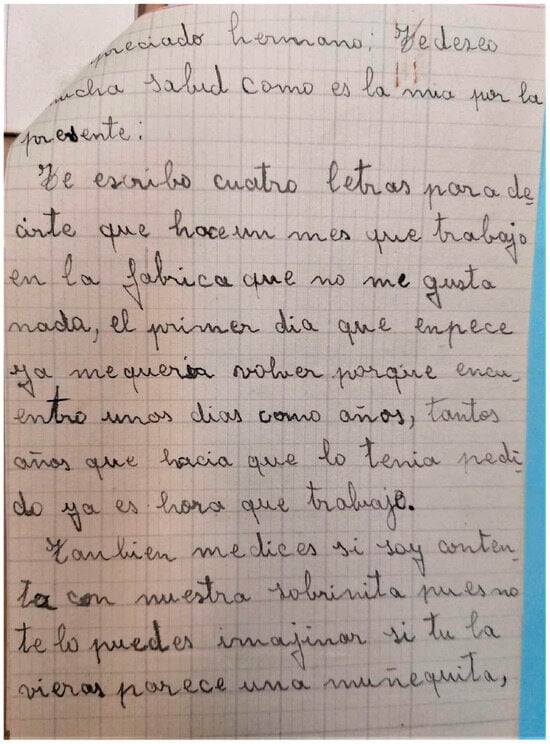 preciado hermano: Te deseo
mucha salud como es la mia por la
presente:
Te escribo cuatro letras para de-
cirte que hace un mes que trabajo
en la fabrica que no me gusta
nada, el primer dia que enpece
ya me queria volver porque encu-
entro unos dias como años, tantos
años que hacia que lo tenia pedi-
do ya es hora que trabajo.
Tanbien me dices si soy conten-
ta con nuestra sobrinita pues no
te lo puedes imajinar si tu la
vieras parece una muñequita,